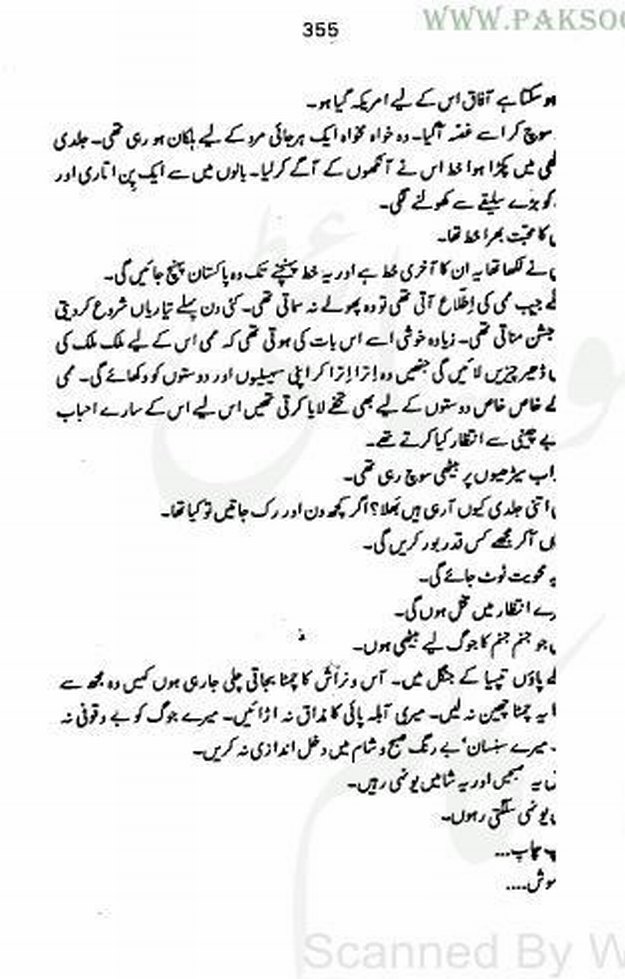 WWW.PAKSOC
355
ہو سکتا ہے آفاق اس کے لیے امریکہ گیا ہو۔
سوچ کر اسے غصہ آگیا۔ وہ خواہ مخواہ ایک ہرجائی مرد کے لیے ہلکان ہو رہی تھی۔ جلدی
میں پکڑا ہوا خط اس نے آنکھوں کے آگے کرلیا۔ بالوں میں سے ایک پِن اتاری اور
کو بڑے سلیقے سے کھولنے لگی۔
کا محبّت بھرا خط تھا۔
نے لکھا تھا یہ ان کا آخری خط ہے اور یہ خط پہنچنے تک وہ پاکستان پہنچ جائیں گی۔
جب ممی کی اِطّلاع آتی تھی تو وہ پھولے نہ سماتی تھی۔ کئی دن پہلے تیاریاں شروع کردیتی
جشن مناتی تھی۔ زیادہ خوشی اسے اس بات کی ہوتی تھی کہ ممی اس کے لیے ملک ملک کی
ڈھیر چیزیں لائیں گی جنھیں وہ اِترا اِترا کر اپنی سہیلیوں اور دوستوں کو دکھائے گی۔ ممی
کے خاص خاص دوستوں کے لیے بھی تحفے لایا کرتی تھیں اس لیے اس کے سارے احباب
بے چینی سے انتظار کیا کرتے تھے۔
اب سیڑھیوں پر بیٹھی سوچ رہی تھی۔
اتنی جلدی کیوں آرہی ہیں بھلا؟ اگر کچھ دن اور رک جاتیں تو کیا تھا۔
آکر مجھے کس قدر بور کریں گی۔
یہ محویت ٹوٹ جائے گی۔
انتظار میں مخل ہوں گی۔
جو جنم جنم کا جوگ لیے بیٹھی ہوں۔
پاؤں تپسیا کے جنگل میں۔ آس و نراش کا چمٹا بجاتی چلی جارہی ہوں کہیں وہ مجھ سے
یہ چمٹا چھین نہ لیں۔ میری آبلہ پائی کا مذاق نہ اڑائیں۔ میرے جوگ کو بے وقوفی نہ
میرے سنسان‘ بے رنگ صبح و شام میں دخل اندازی نہ کریں۔
یہ صبحیں اور یہ شامیں یونہی رہیں۔
یونہی سلگتی رہوں۔
چاپ...
موش....
Scanned By W